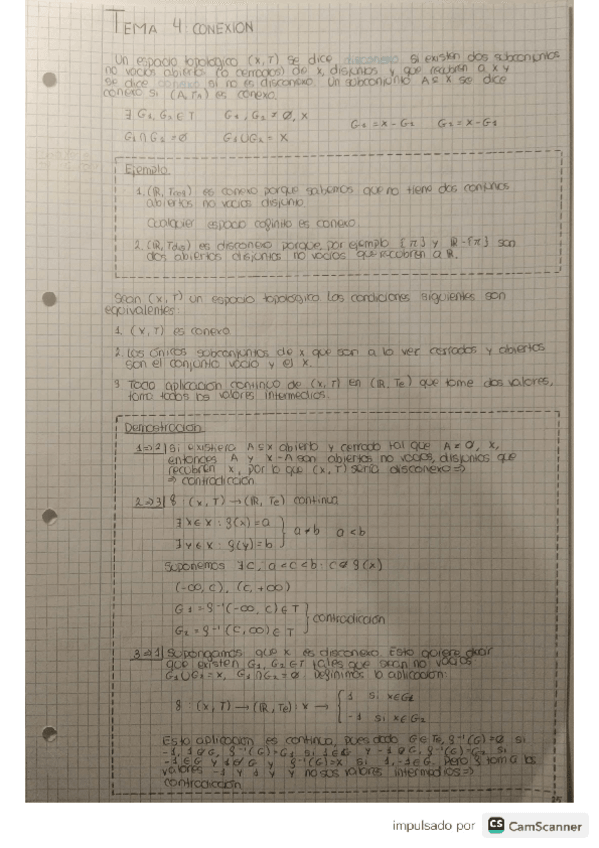 TEMA 4: CONEXION
Un espacio topológico (X,T) se dice disconexo si existen dos subconjuntos
no vacíos abiertos (o cerrados) de X, disjuntos y que recubren a X y
se dice conexo si no es disconexo. Un subconjunto A⊆X se dice
conexo si (A, T_A) es conexo.
∃ G₁, G₂ ∈ T G₁, G₂ ≠ ∅, X G₁ = X - G₂ G₂ = X - G₁
G₁ ∩ G₂ = ∅ G₁ ∪ G₂ = X
Ejemplo
1. (ℝ, ) es conexo porque sabemos que no tiene dos conjuntos
abiertos no vacíos disjunto.
Cualquier espacio cofinito es conexo.
2. (ℝ, ) es disconexo porque, por ejemplo {π} y ℝ-{π} son
dos abiertos disjuntos no vacíos que recubren a ℝ.
Sean (X,T) un espacio topológico. Las condiciones siguientes son
equivalentes:
1. (X,T) es conexo
2. Los únicos subconjuntos de X que son a la vez cerrados y abiertos
son el conjunto vacío y el X.
3 Toda aplicación continua de (X,T) en (ℝ, Te) que tome dos valores,
toma todos los valores intermedios.
Demostración
1⇒2| Si existiera A⊆X abierto y cerrado tal que A ≠ ∅, X,
entonces A y X-A son abiertos no vacíos, disjuntos que
recubren X, por lo que (X,T) sería disconexo ⇒
⇒ contradicción
2⇒3| g: (X,T) → (ℝ, Te) continua
∃ x∈X: g(x)=a
∃ y∈X: g(y)=b } a≠b a<b
Suponemos ∃c, a<c<b: c∉g(X)
(-∞, c), (c, +∞)
G₁ = g⁻¹(-∞, c) ∈ T
G₂ = g⁻¹(c, ∞) ∈ T } contradicción
3⇒1| Supongamos que X es disconexo. Esto quiere decir
que existen G₁, G₂ ∈ T tales que sean no vacíos
G₁∪G₂ = X, G₁∩G₂ = ∅. Definimos la aplicación:
g: (X,T) → (ℝ, Te): x → { 1 si x∈G₁
-1 si x∈G₂
Esta aplicación es continua, pues dado G∈Te, g⁻¹(G)=∅ si
-1, 1∉G, g⁻¹(G)=G₁ si 1∈G y -1∉G, g⁻¹(G)=G₂ si
-1∈G y 1∉G y g⁻¹(G)=X si 1,-1∈G. Pero g toma los
valores -1 y 1 y no sus valores intermedios ⇒
contradicción
impulsado por CS CamScanner